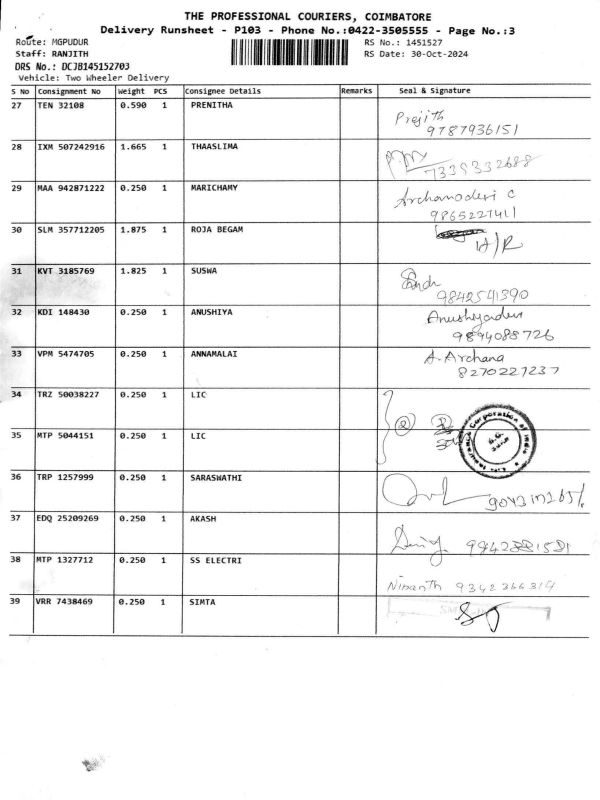 THE PROFESSIONAL COURIERS, COIMBATORE
Delivery Runsheet - P103 - Phone No.:0422-3505555 - Page No.:3
Route: MGPUDUR
RS No.: 1451527
Staff: RANJITH
RS Date: 30-Oct-2024
DRS No.: DCJB145152703
Vehicle: Two Wheeler Delivery
S No Consignment No Weight PCS Consignee Details Remarks Seal & Signature
27 TEN 32108 0.590 1 PRENITHA
Prejith
9787936151
28 IXM 507242916 1.665 1 THAASLIMA
7339332688
29 MAA 942871222 0.250 1 MARICHAMY
Archanadevi C
9865227411
30 SLM 357712205 1.875 1 ROJA BEGAM
H/R
31 KVT 3185769 1.825 1 SUSWA
9842541390
32 KDI 148430 0.250 1 ANUSHIYA
Anushyadevi
9894088726
33 VPM 5474705 0.250 1 ANNAMALAI
A. Archana
8270227237
34 TRZ 50038227 0.250 1 LIC
35 MTP 5044151 0.250 1 LIC
2
Insurance Corporation of India
36 TRP 1257999 0.250 1 SARASWATHI
37 EDQ 25209269 0.250 1 AKASH
38 MTP 1327712 0.250 1 SS ELECTRI
Nibanth 9342366314
39 VRR 7438469 0.250 1 SIMTA